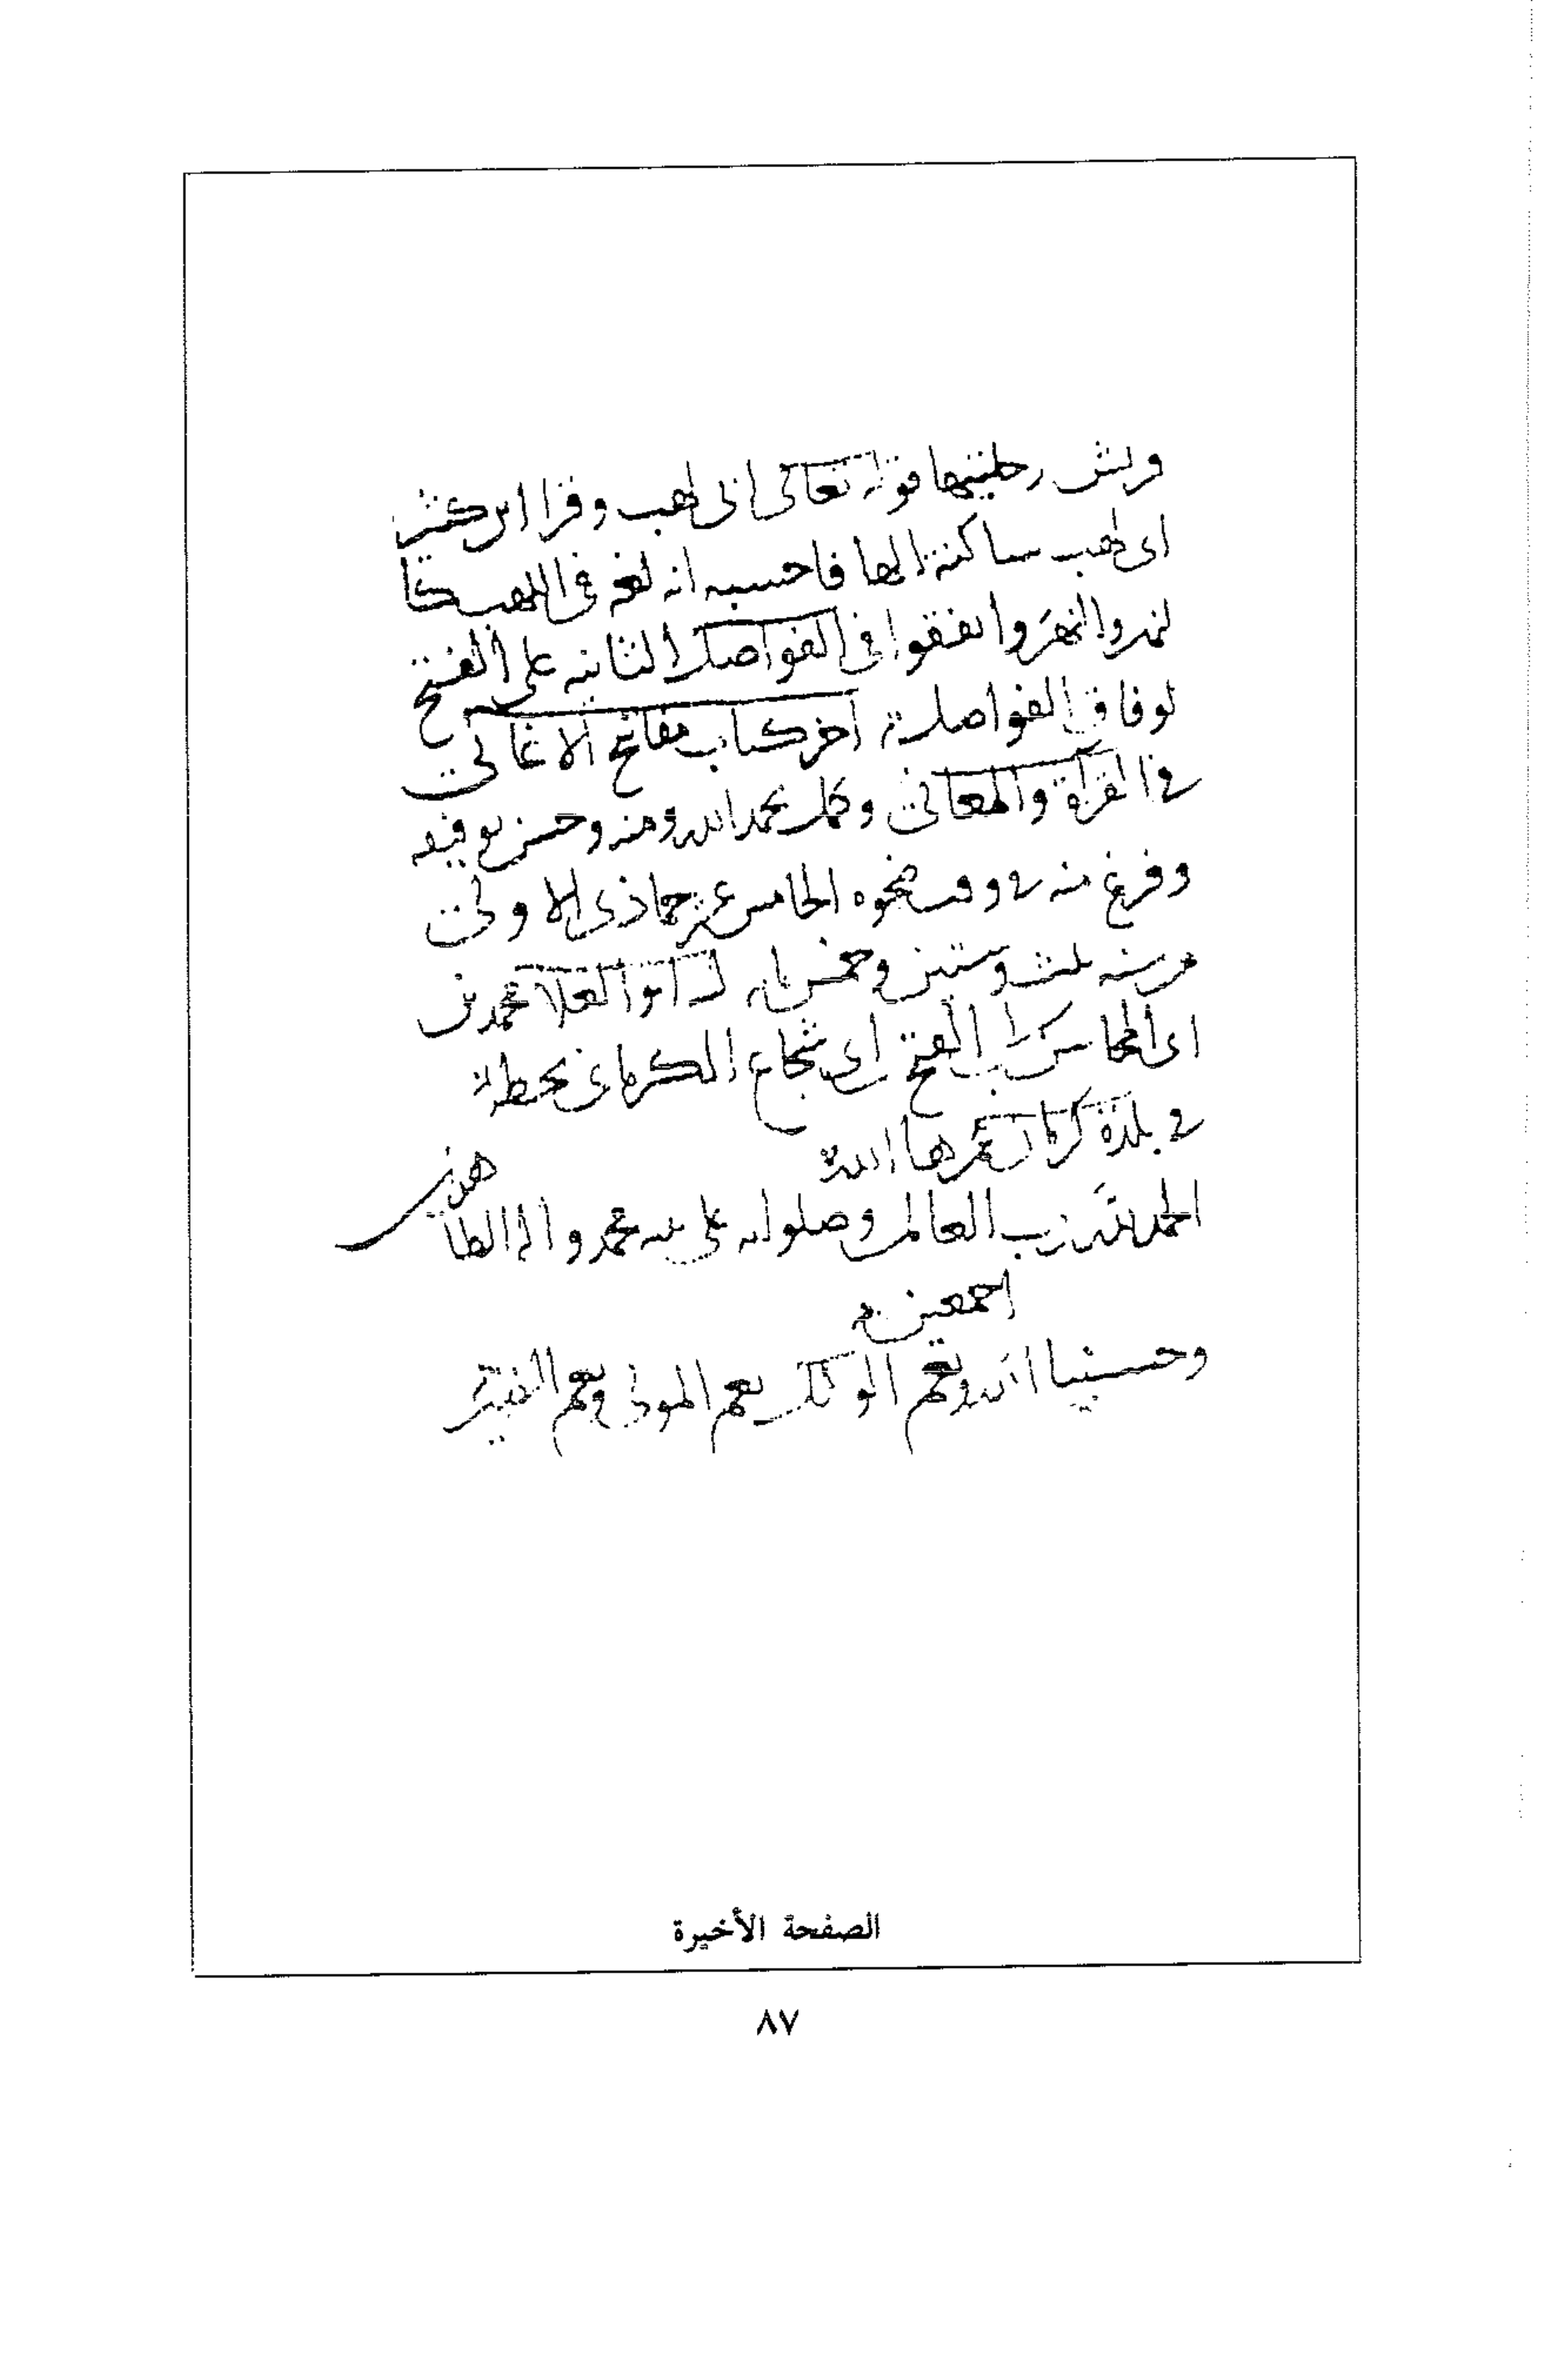 قوله تعالى ابى لهب وقرا ابن كثير
ابى لهب ساكنة الها فاحسبه انه لغه فى اللهب كا
لنهر والنهَر واتفقوا فى الفواصل الثانيه على الفتح
لوفاق الفواصل آخر كتاب مفاتح الاغانى
فى القرآة والمعانى وكمل بحمد الله ومنه وحسن توفيقه
وفرغ منه فى وقت ضحوه الخامس عشر جماذى الاولى
من سنه ثلث وستين وخمس مايه ابو العلا محمد بن
ابى المحاسن بن ابى الفتح بن ابى شجاع الكرمانى بخطه
فى بلدة كرمان عمرها الله
الحمد لله رب العالمين وصلواته على نبيه محمد واله الطاهرين
اجمعين
وحسبنا الله ونعم الوكيل نعم المولى ونعم النصير
الصفحة الأخيرة
٨٧